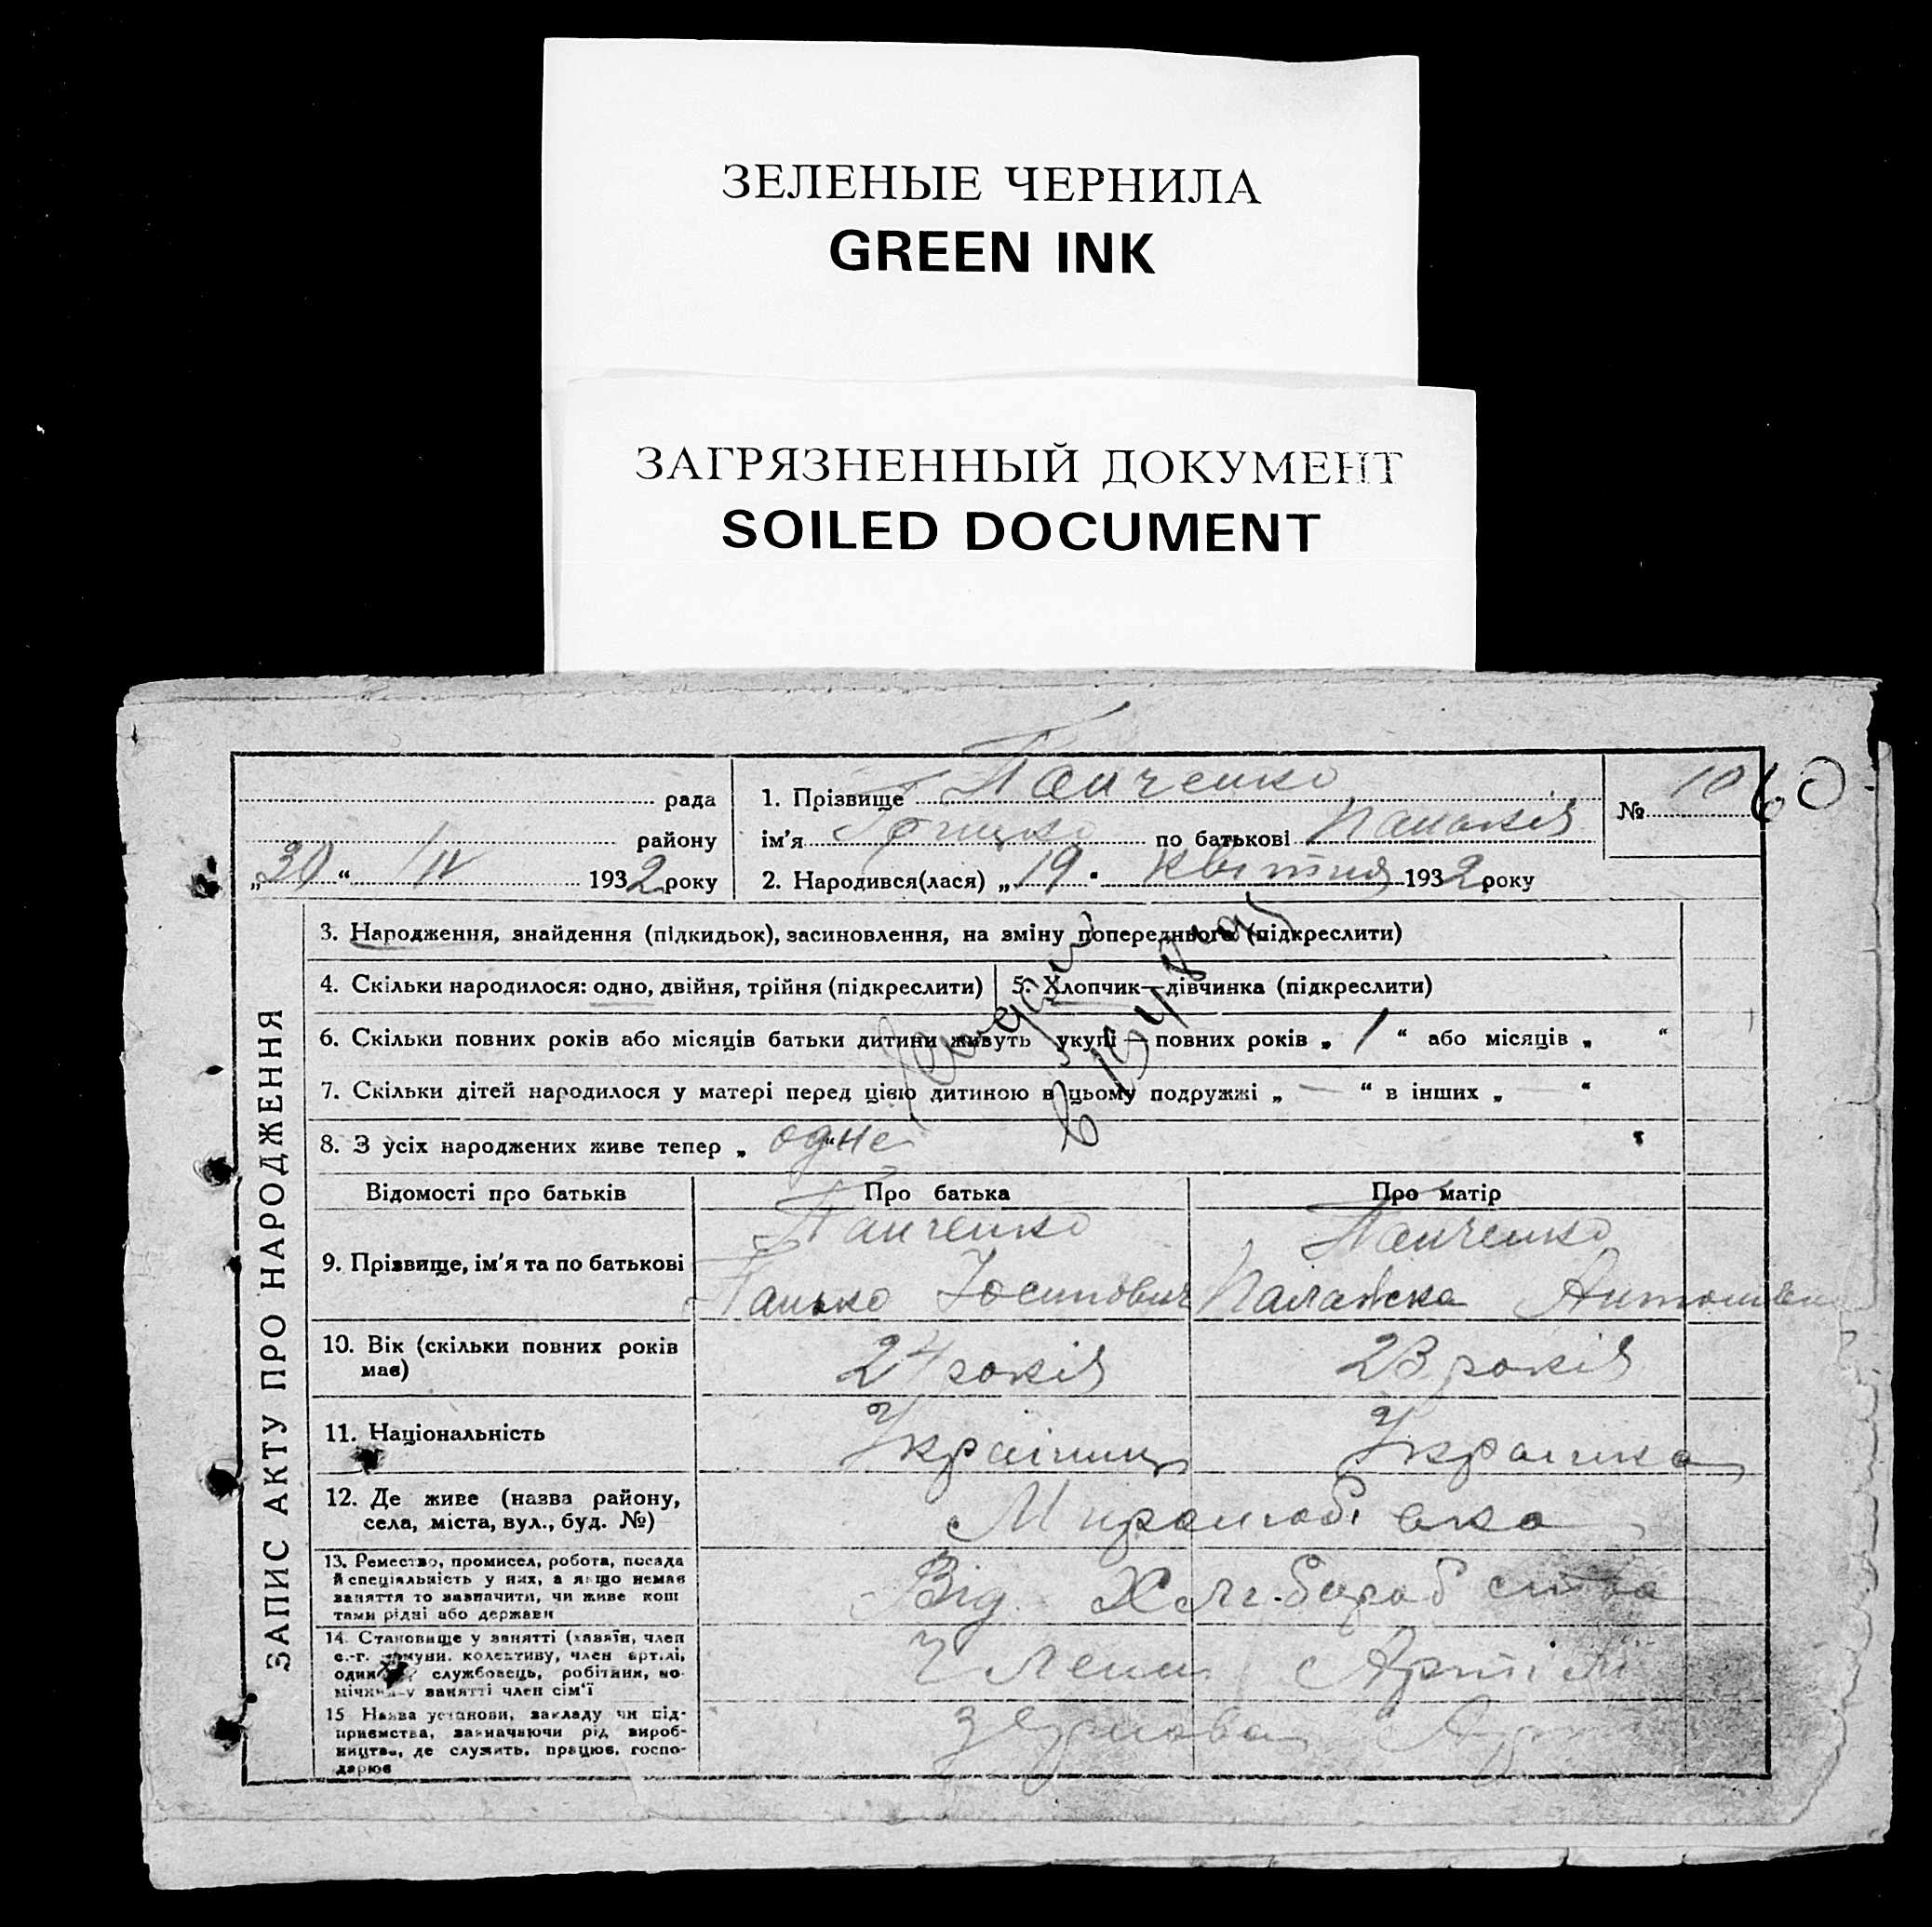 ЗЕЛЕНЫЕ ЧЕРНИЛА
GREEN INK
ЗАГРЯЗНЕННЫЙ ДОКУМЕНТ
SOILED DOCUMENT
ЗАПИС АКТУ ПРО НАРОДЖЕННЯ
рада
району
„30“ /IV 1932 року
1. Прізвище Панченко
ім'я Грицко по батькові Панасів
2. Народився(лася) „19" Квітня 1932 року
№ 10
60
3. Народження, знайдення (підкидьок), засиновлення, на зміну попереднього (підкреслити)
4. Скільки народилося: одно, двійня, трійня (підкреслити)
5. Хлопчик—дівчинка (підкреслити)
6. Скільки повних років або місяців батьки дитини живуть укупі — повних років „ 1 “ або місяців „ “
7. Скільки дітей народилося у матері перед цією дитиною в цьому подружжі „ — “ в інших „ — “
8. З усіх народжених живе тепер „ одне "
Відомості про батьків
Про батька
Про матір
9. Прізвище, ім'я та по батькові
Панченко
Панько Йосипович
Панченко
Палажка
10. Вік (скільки повних років
має)
24 років
23 років
11. Національність
Українець
Українка
12. Де живе (назва району,
села, міста, вул., буд. №)
13. Ремество, промисел, робота, посада
й спеціяльність у них, а якщо немає
заняття то зазначити, чи живе кош
тами рідні або держави
Від Хліборобства
14. Становище у занятті (хазяїн, член
с.-г. комуни, колективу, член артілі,
службовець, робітник, по-
мічний у занятті член сім'ї
Член Артілі
15 Назва установи, закладу чи під-
приємства, зазначаючи рід вироб-
ництва, де служить, працює, госпо-
дарює
Зернова